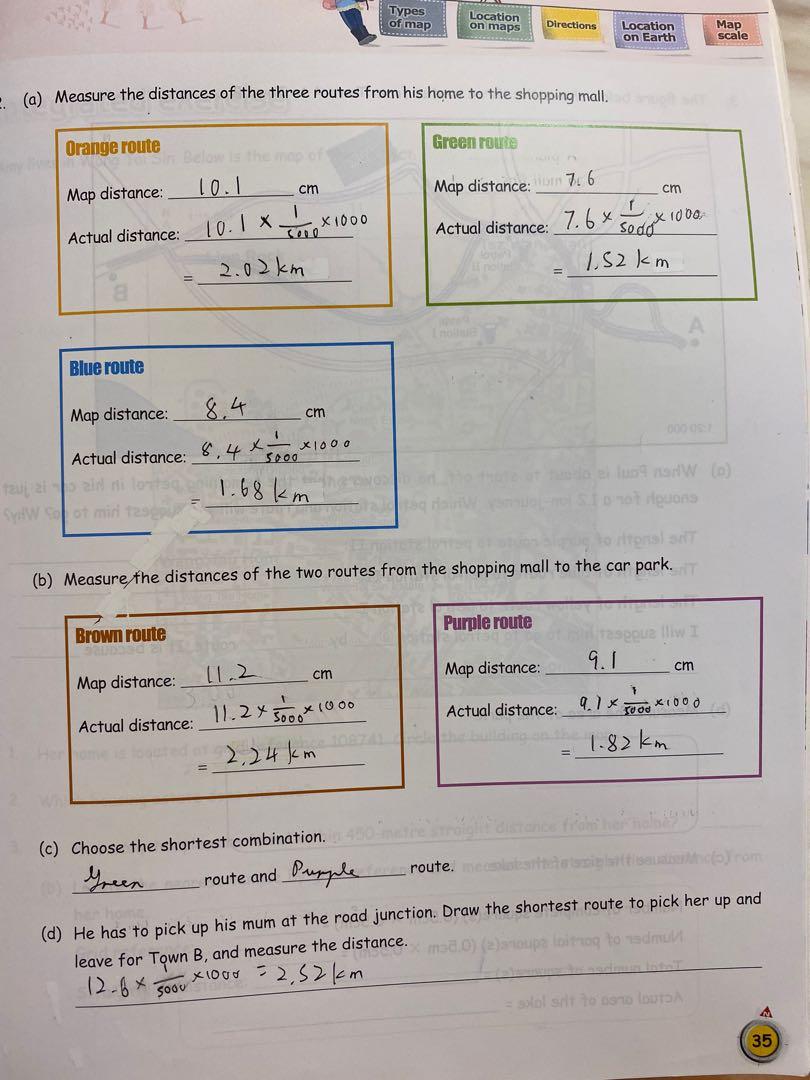 Types of map
Location on maps
Directions
Location on Earth
Map scale
(a) Measure the distances of the three routes from his home to the shopping mall.
Orange route
Map distance: 10.1 cm
Actual distance: 10.1 × 1/5000 × 1000
= 2.02 km
Green route
Map distance: 7.6 cm
Actual distance: 7.6 × 1/5000 × 1000
= 1.52 km
Blue route
Map distance: 8.4 cm
Actual distance: 8.4 × 1/5000 × 1000
= 1.68 km
(b) Measure the distances of the two routes from the shopping mall to the car park.
Brown route
Map distance: 11.2 cm
Actual distance: 11.2 × 1/5000 × 1000
= 2.24 km
Purple route
Map distance: 9.1 cm
Actual distance: 9.1 × 1/5000 × 1000
= 1.82 km
(c) Choose the shortest combination.
Green route and Purple route.
(d) He has to pick up his mum at the road junction. Draw the shortest route to pick her up and
leave for Town B, and measure the distance.
12.6 × /5000 × 1000 = 2.52 km
35